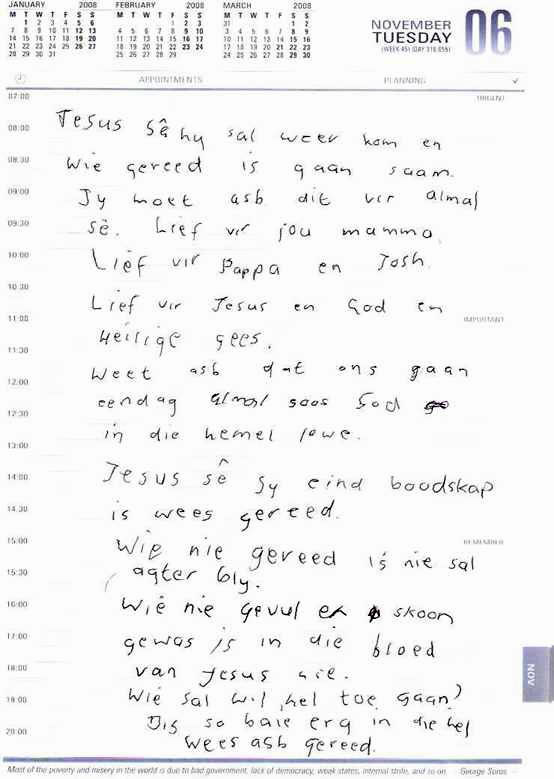 JANUARY 2008 FEBRUARY 2008 MARCH 2008
M T W T F S S M T W T F S S M T W T F S S
1 2 3 4 5 6 1 2 3 31 1 2
7 8 9 10 11 12 13 4 5 6 7 8 9 10 3 4 5 6 7 8 9
14 15 16 17 18 19 20 11 12 13 14 15 16 17 10 11 12 13 14 15 16
21 22 23 24 25 26 27 18 19 20 21 22 23 24 17 18 19 20 21 22 23
28 29 30 31 25 26 27 28 29 24 25 26 27 28 29 30
NOVEMBER
TUESDAY
06
APPOINTMENTS PLANNING
07:00 URGENT
08:00 Jesus sê hy sal weer kom en
08:30 Wie gereed is gaan saam.
09:00 Jy moet asb dit vir almal
09:30 sê. Lief vir jou mamma
10:00 Lief vir Pappa en Josh.
10:30 Lief vir Jesus en God en
11:00 IMPORTANT
Heilige gees.
11:30
Weet asb dat ons gaan
12:00
eendag almal soos God
12:30
in die hemel lewe.
13:00
Jesus sê sy eind boodskap
14:00
is wees gereed.
14:30
15:00 REMEMBER
Wie nie gereed is nie sal
15:30 agter bly.
16:00 Wie nie gevul en skoon
17:00 gewas is in die bloed
18:00 van Jesus nie.
19:00 Wie sal wil hel toe gaan?
Dis so baie erg in die hel
20:00 Wees asb gereed.
NOV
Most of the poverty and misery in the world is due to bad government, lack of democracy, weak states, internal strife, and so on. George Soros